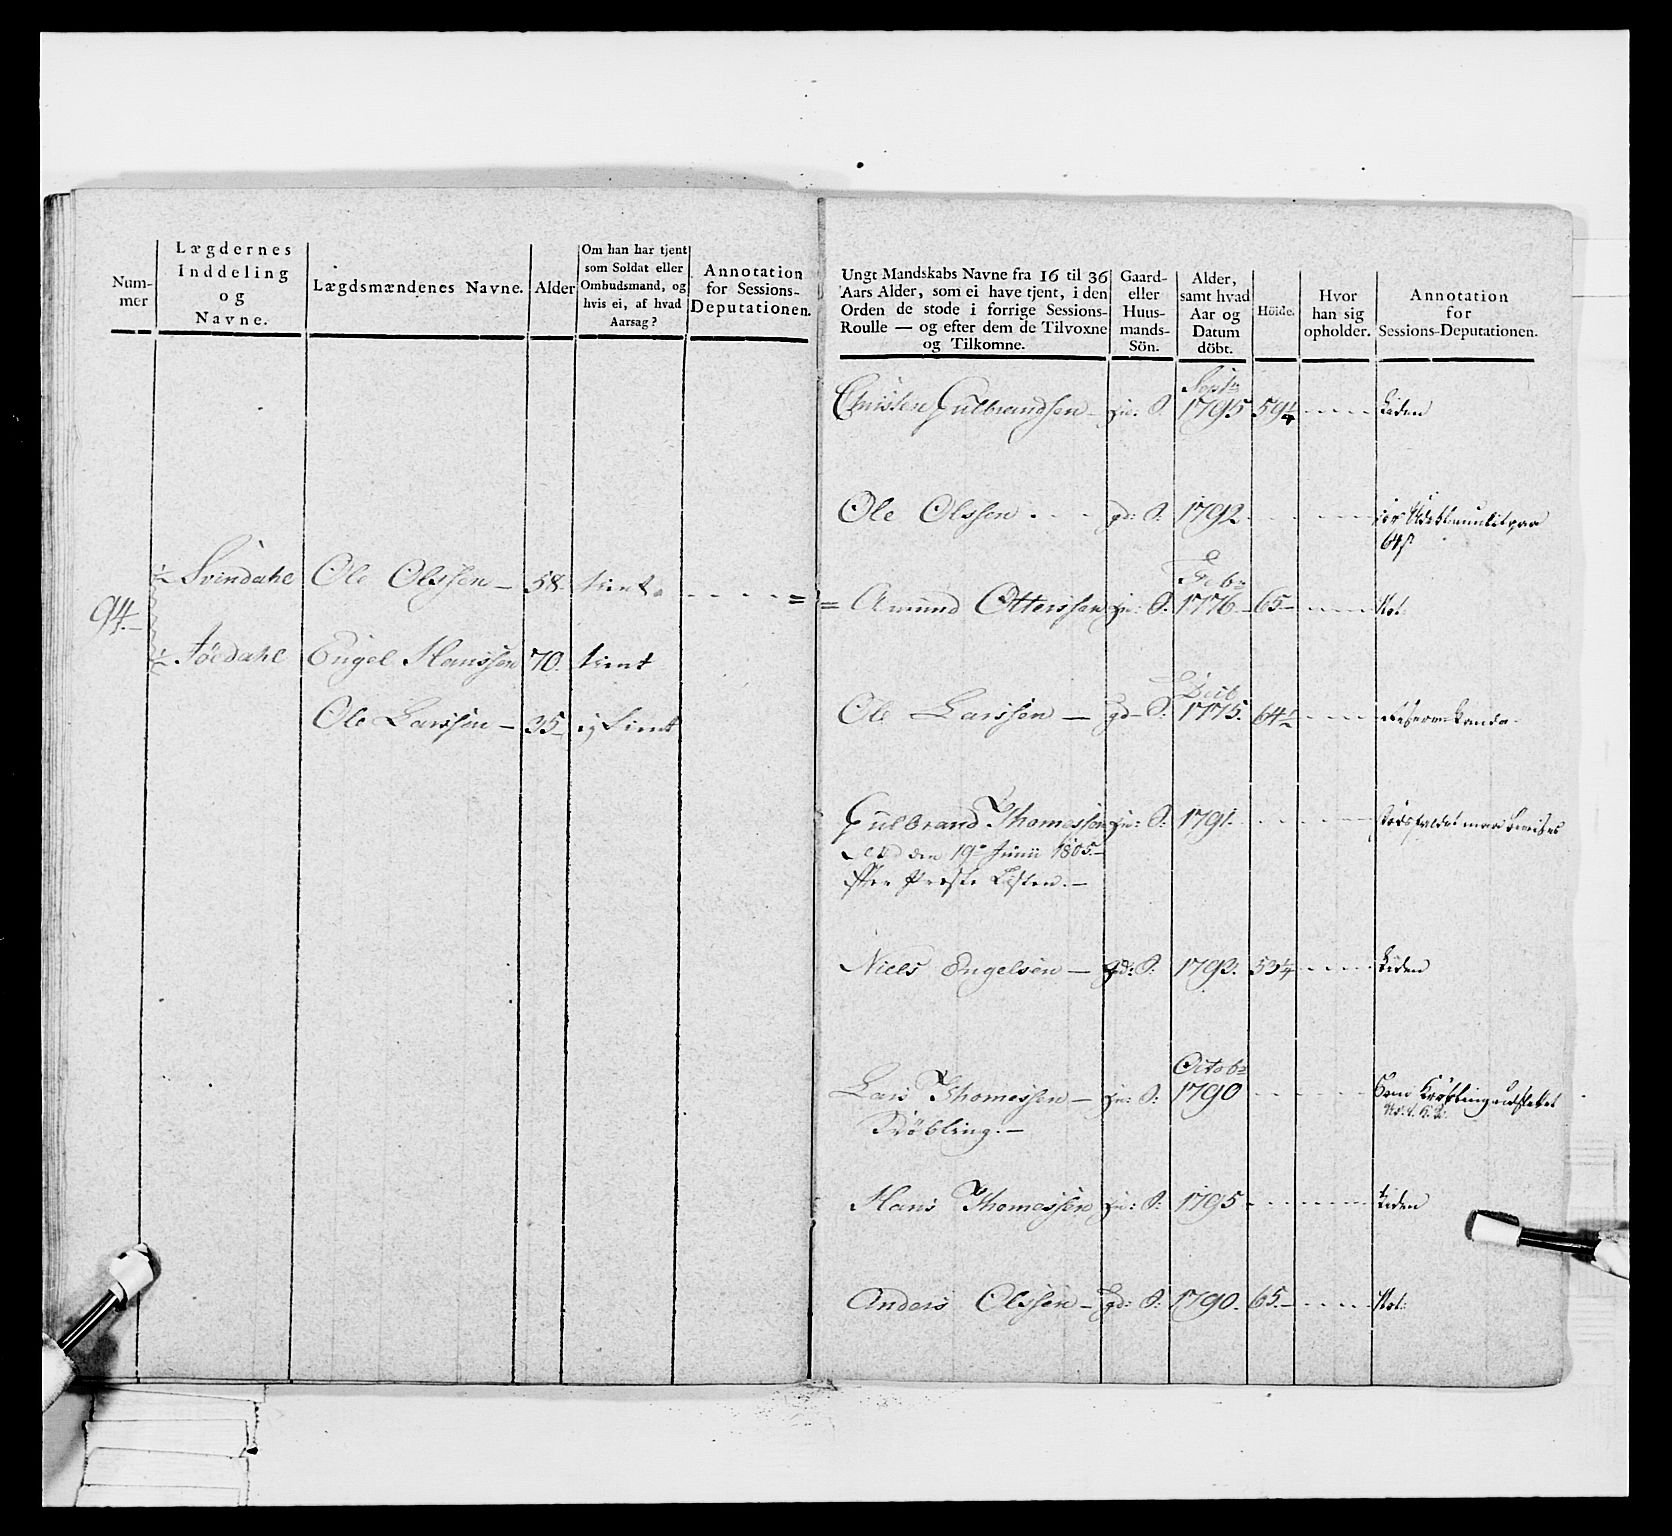 Num-
mer
Lægdernes
Inddeling
og
Navne.
Lægdsmændenes Navne.
Alder
Om han har tjent
som Soldat eller
Ombudsmand, og
hvis ei, af hvad
Aarsag?
Annotation
for Sessions-
Deputationen.
94.
½ Svindahl Ole Olssen - 58. tient
½ Engel Hanssen 70. tient
Ole Larssen - 35 ej tient
Ungt Mandskabs Navne fra 16 til 36
Aars Alder, som ei have tjent, i den
Orden de stode i forrige Sessions-
Roulle — og efter dem de Tilvoxne
og Tilkomne.
Gaard-
eller
Huus-
mands-
Sön.
Alder,
samt hvad
Aar og
Datum
döbt.
Höide.
Hvor
han sig
opholder.
Annotation
for
Sessions-Deputationen.
Septr
Christen Gulbrandsen - hu: S. 1795 59¼ liden
Ole Olssen gd: S. 1792
64
Febr
Amund Otterssen hu: S: 1776 65 Not:
Ole Larssen — gd S: 1775. 64½
Gulbrand Thomessen hu: S: 1791.
den 19e Junii 1805. -
Listen. -
Niels Engelsen — gd: S: 1793. 53¼ liden
Octobr
Lars Thomessen - hu: S: 1790
Kröbling. -
Hans Thomessen hu: S: 1795 liden
Anders Olssen - gd: S: 1790. 65. - Not: